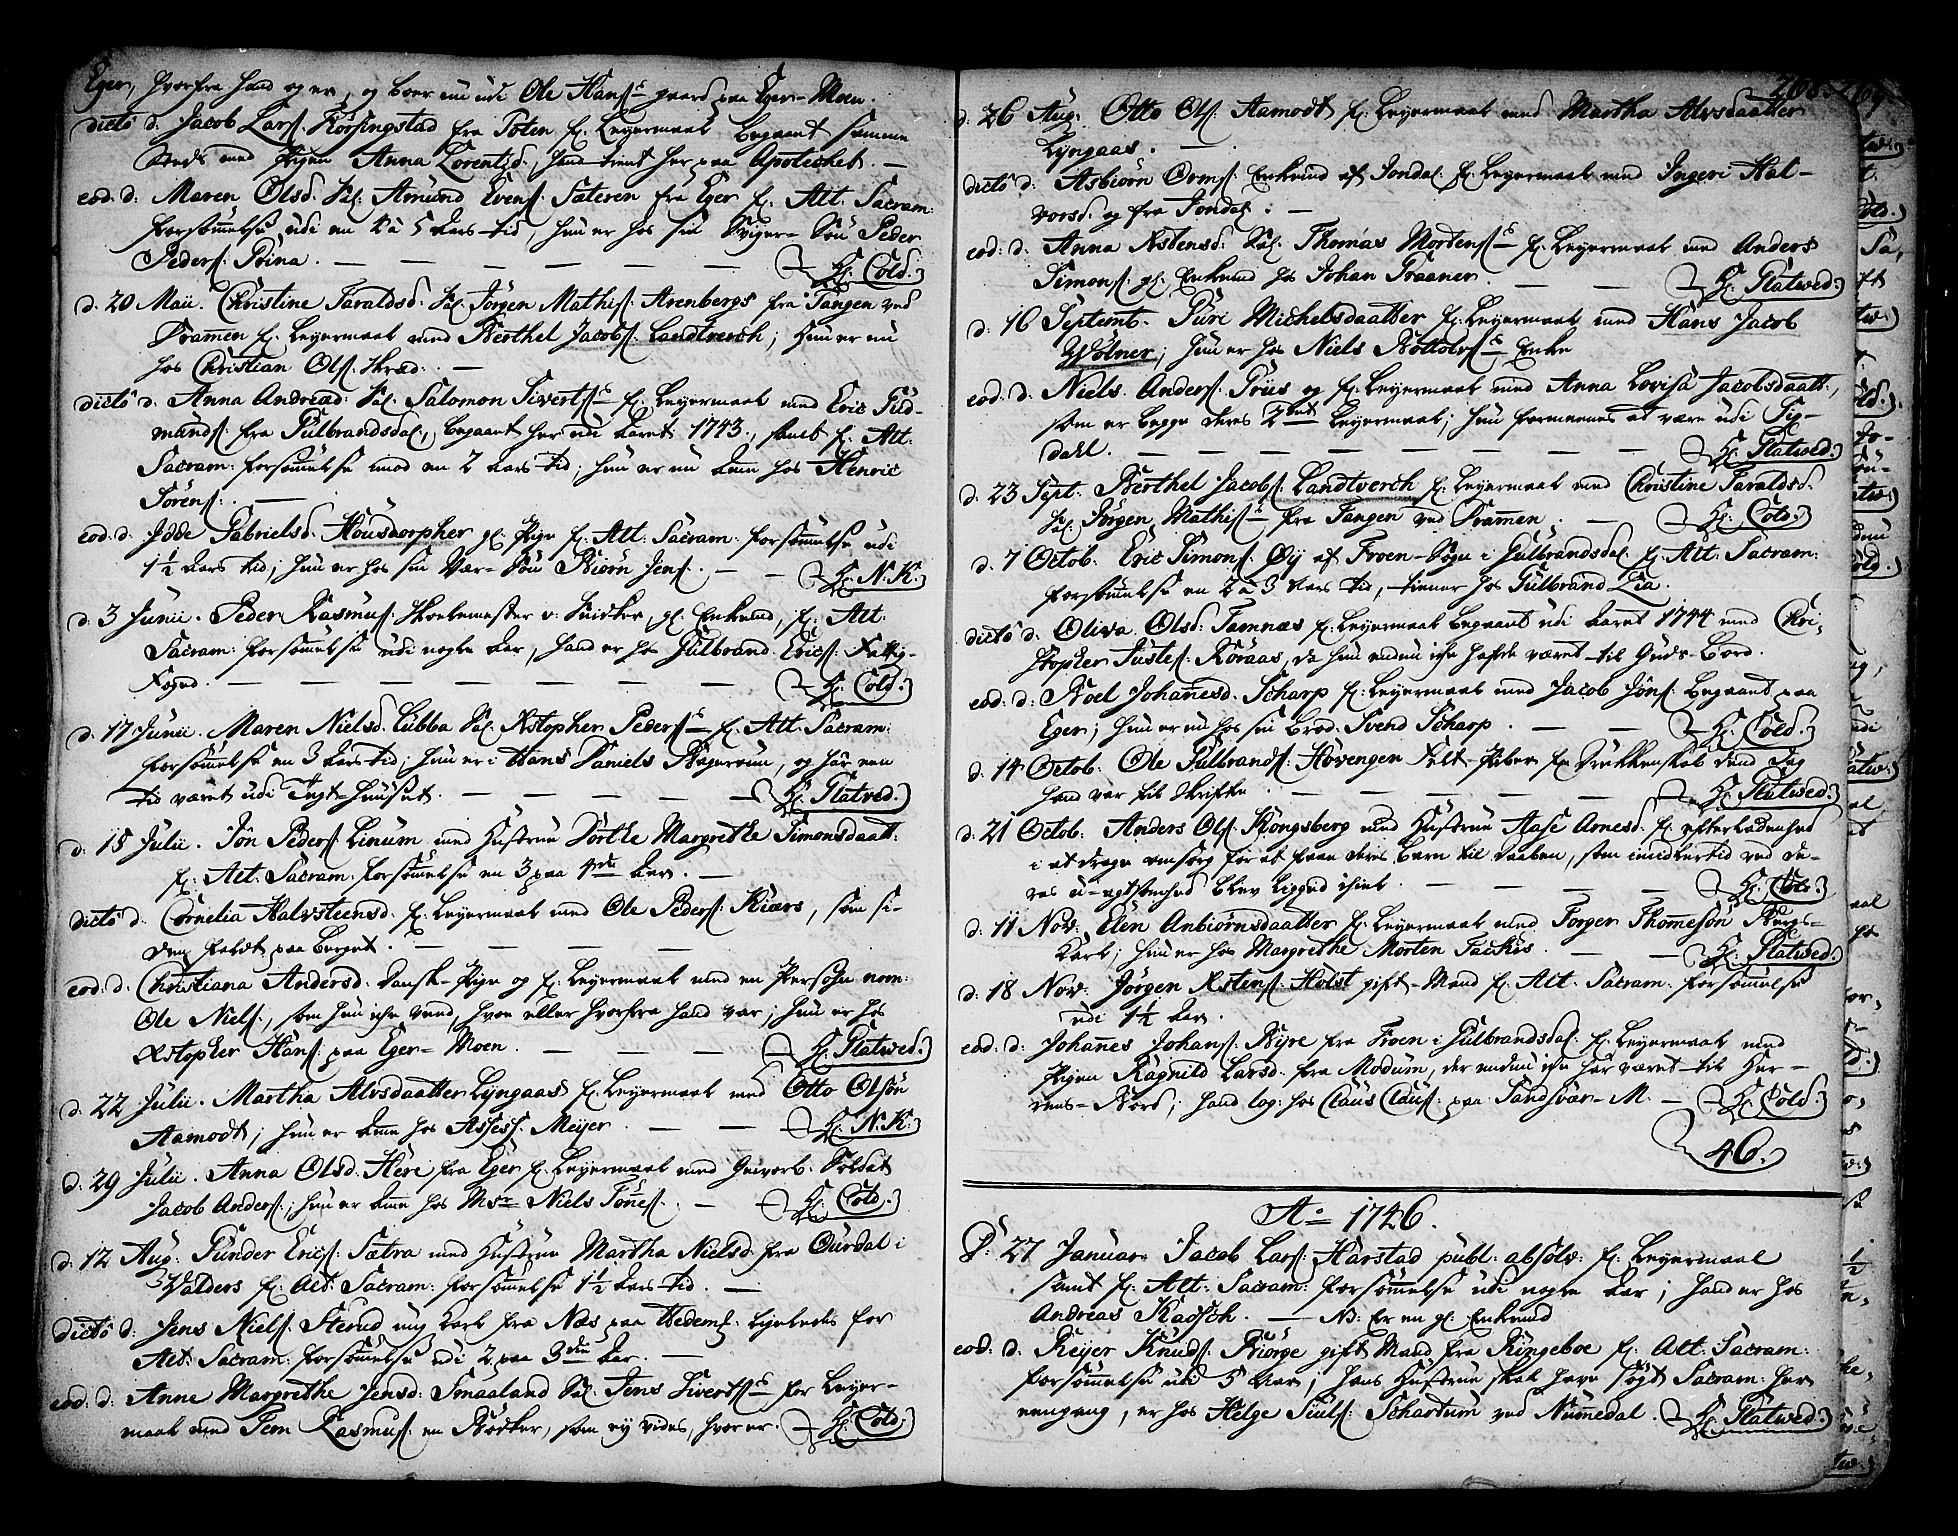 Eger, hvorfra hand og er, og boer nu udi Ole Hanss. gaard paa Eger-Moen.
dicto d. Jacob Larss. Korsingstad fra Toten f. Leyermaal begaaet samme
Steds med Pigen Anna Lorentzd., hand tient her paa Apotechet. —
eod: d. Maren Olsd. Sal. Amund Evens. Sæteren fra Eger f. Alt. Sacram:
forsømmelse udi en 4 à 5 Aars tid, hun er hos sin Sviger-Søn Peder
Peders. Prina. — — — — — — — (H. Cold.)
d. 20 Maii. Christine Taraldsd. Sal. Jörgen Mathiss. Arenbergs fra Tangen ved
Dramen f. Leyermaal med Berthel Jacobs. Landtverch; hun er nu
hos Christian Ols. Skræd. —
dicto d. Anna Andread: Sal. Salomon Sivertss. f. Leyermaal med Eric Gud-
mands. fra Gulbrandsdal, begaaet her udi Aaret 1743, samt f. Alt.
Sacram: forsømmelse imod en 2 Aars tid; hun er nu hos Henric
Sörens. —
eod. d. Idde Gabrielsd. Housdorpher gl. Pige f. Alt. Sacram: forsømmelse udi
1½ Aars tid; hun er hos sin Vær-Søn Biörn Jens. — — (H. N.K.)
d. 3 Junii. Peder Rasmus. Skolemester v: Snidker, gl. Enkemd, f. Alt.
Sacram: forsømmelse udi nogle Aar, hand er hos Gulbrand Erics. Fattig-
Foged. — — — — — — — (H. Cold.)
d. 17 Junii. Maren Nielsd. Lubba Sal. Xstopher Peders. f. Alt. Sacram:
forsømmelse en 3 Aars tid; hun er i Hans Daniels Bageröun, og har een
tid været udi Tugt-huuset. — — — — — (H. Flatved.)
d. 15 Julii. Jön Peders. Linum med Hustrue Dorthe Margrethe Simonsdaatt:
f. Alt: Sacram: forsømmelse en 3 paa 4de Aar. —
dicto d. Cornelia Halvsteensd. f. Leyermaal med Ole Peders. Kiærs, som si-
den faldt paa Berget. — — — —
eod: d: Christiana Andersd. Dansk-Pige og f. Leyermaal med en Persohn nom:
Ole Niels., som hun icke veed, hvor eller hvorfra hand var; hun er hos
Xstopher Hans. paa Eger-Moen. — — — — (H. Flatwed.)
d: 22 Julii. Martha Alvsdaatter Lyngaas f. Leyermaal med Otto Olsön
Aamodt; hun er hos Assess. Meijer. — — — (H. N.K.)
d: 29 Julii. Anna Olsd. Here fra Eger f. Leyermaal med Gevorb. Soldat
Jacob Anders.; hun er hos Msr. Niels Tönnes. — (H. Cold.)
d: 12 Aug: Gunder Erics. Sætra med Hustrue Martha Nielsd. fra Ourdal i
Walders f. Alt: Sacram: forsømmelse 1½ Aars tid. —
dicto d: Jens Niels. Sterud ung Karl fra Næs paa Hedem. ligeledes for
Alt: Sacram: forsømmelse udi 2 paa 3die Aar. —
eod: d: Anne Margrethe Jensd: Smaaland Sal. Jens Sivertss. for Leyer-
maal med Peer Rasmus. en Bödker, som ey vides, hvor er. — (H. Cold.)
268.
269.
d: 26 Aug: Otto Ols: Aamodt f. Leyermaal med Martha Alvsdaatter
Lyngaas. —
dicto d: Asbiörn Orms. Enkemd af Jondal f. Leyermaal med Ingeri Hal-
vorsd. og fra Jondal. —
eod: d: Anna Astensd: Sal. Thomas Mortenss. f. Leyermaal med Anders
Simons. gl. Enkemd hos Johan Traaner. — — (H. Flatwed.)
d: 16 Septemb. Guri Michelsdaatter f. Leyermaal med Hans Jacob
Wölner; hun er hos Niels Rottolvs Enke
eod. d. Niels Anders. Griis og f. Leyermaal med Anna Lovisa Jacobsdaatt:,
som er begge deres 2det Leyermaal; hun formeenes at være udi Sig-
dahl. — — — — — — — (H. Flatwed.)
d: 23 Sept: Berthel Jacobs. Landtverch f. Leyermaal med Christine Taraldsd.
Sal. Jörgen Mathiss. fra Tangen ved Dramen. — (H. Cold.)
d. 7 Octob. Eric Simons. Öy af Froen-Sogn i Gulbrandsdal f. Alt. Sacram:
forsømmelse en 2 à 3 Aars tid, tiener hos Gulbrand Lia.
dicto d. Oliva Olsd. Tamnæs f. Leyermaal begaaet udi Aaret 1744 med Chri-
stopher Justes. Röraas, da hun endnu icke hafde været til Guds-Bord.
eod: d: Roel Johanesd. Scharp f. Leyermaal med Jacob Jöns. begaaet paa
Eger; hun er nu hos sin Brod. Svend Scharp. — — (H. Cold.)
d. 14 Octob. Ole Gulbrands. Hovengen Felt-Piber for Drukkenskab dend Dag
hand var til Skrifte. — — — — (H. Flatwed.)
d. 21 Octob. Anders Ols. Kongsberg med Hustrue Aase Arnesd. f. efterladenhed
i at drage omsorg for at faae deres barn til Daaben, som imidlertid ved de-
res u-agtsomhed blev ligget ihiel. — — — (H. Cold.)
d: 11 Nov: Elen Anbiörnsdaatter f. Leyermaal med Torger Thomesön Bergs-
Karl; hun er hos Margrethe Morten Backes. — — (H. Flatwed.)
d. 18 Nov. Jörgen Xstens. Holst gift-Mand f. Alt. Sacram: forsømmelse
udi 1½ Aar.
eod: d: Johannes Johans. Byre fra Froen i Gulbrandsdal f. Leyermaal med
Pigen Ragnild Larsd. fra Modum, der endnu icke har været til Her-
rens-Bord; hand log: hos Claus Claus. paa Sandsvær-M. — (H. Cold.)
46.
Ao 1746.
D. 27 Januar. Jacob Lars. Harstad publ: absolv: f. Leyermaal
samt f. Alt: Sacram: forsømmelse udi nogle Aar; hand er hos
Andreas Kaasch. — NB: Er en gl. Enkemd
eod: d. Reijer Knuds. Biörge gift Mand fra Ringeboe f. Alt: Sacram:
forsømmelse udi 5 Aar; hans Hustrue skal have sögt Sacram: her
eengang, er hos Helge Siuls. Schartum ved Nummedal. (H. Flatwed.)